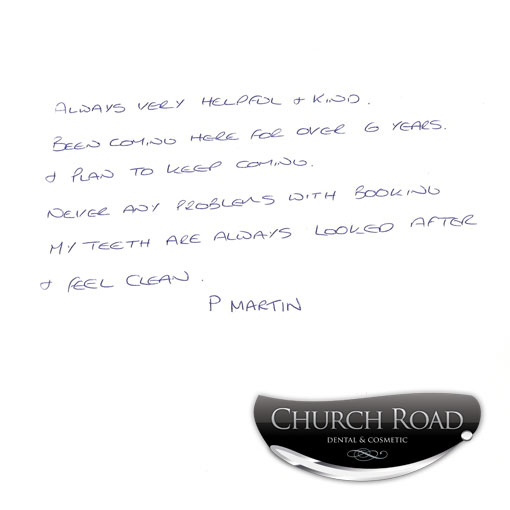 ALWAYS VERY HELPFUL & KIND.
BEEN COMING HERE FOR OVER 6 YEARS.
& PLAN TO KEEP COMING.
NEVER ANY PROBLEMS WITH BOOKING
MY TEETH ARE ALWAYS LOOKED AFTER
& FEEL CLEAN.
P MARTIN
CHURCH ROAD
DENTAL & COSMETIC